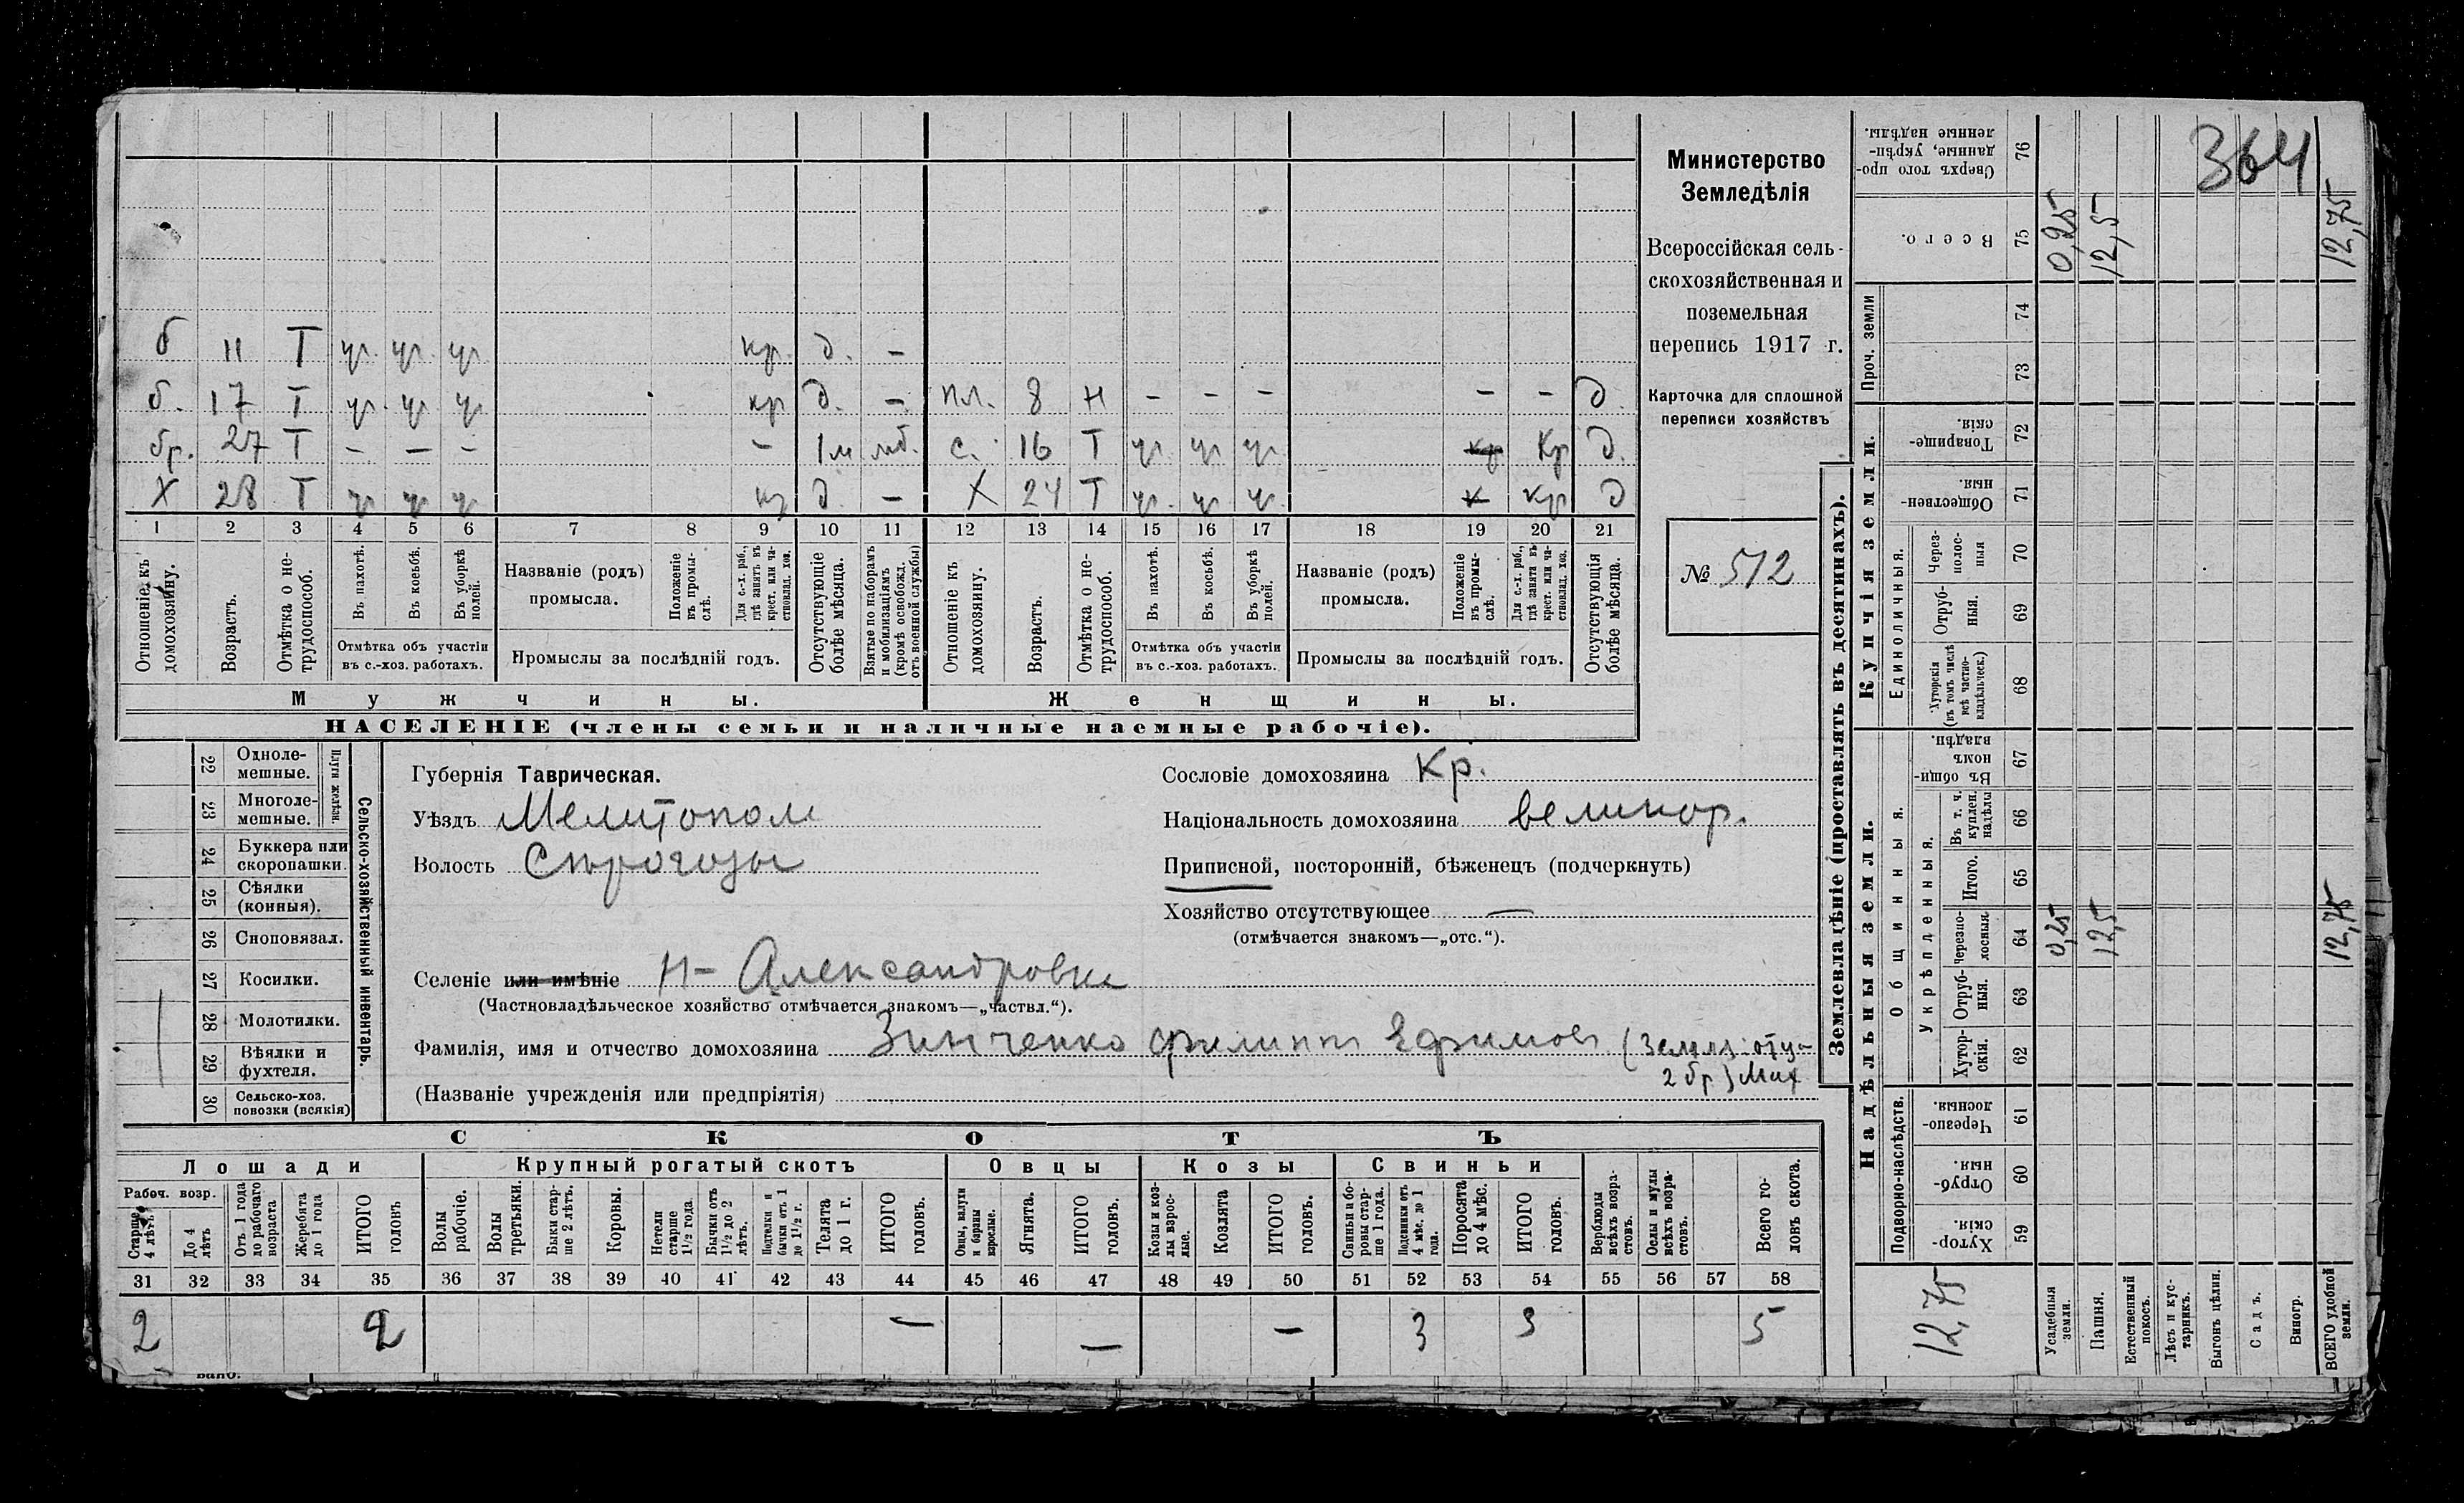 364
Министерство
Земледѣлія
Всероссійская сель-
скохозяйственная и
поземельная
перепись 1917 г.
Карточка для сплошной
переписи хозяйствъ
№ 512
б 11 Т уч. уч. уч. кр. д. —
б. 17 Т уч. уч. уч кр д. — пл. 8 н — — — — — д.
бр. 27 Т — — — — 1 м мб. с. 16 Т уч. уч. уч. кр кр д.
Х 28 Т уч уч уч кр д — Х 24 Т уч. уч. уч. к кр д
1 2 3 4 5 6 7 8 9 10 11 12 13 14 15 16 17 18 19 20 21
Отношеніе къ домохозяину.
Возрастъ.
Отмѣтка о не-трудоспособ.
Въ пахотѣ.
Въ косьбѣ.
Въ уборкѣ полей.
Отмѣтка объ участіи
въ с.-хоз. работахъ.
Названіе (родъ)
промысла.
Положеніе въ промы-слѣ.
Для с.-х. раб., гдѣ занятъ въ крест. или ча-стновлад. хоз.
Промыслы за послѣдній годъ.
Отсутствующіе болѣе мѣсяца.
Взятые по наборамъ и мобилизаціямъ (кромѣ освобожд. отъ военной службы)
Отношеніе къ домохозяину.
Возрастъ.
Отмѣтка о не-трудоспособ.
Въ пахотѣ.
Въ косьбѣ.
Въ уборкѣ полей.
Отмѣтка объ участіи
въ с.-хоз. работахъ.
Названіе (родъ)
промысла.
Положеніе въ промы-слѣ.
Для с.-х. раб., гдѣ занятъ въ крест. или ча-стновлад. хоз.
Промыслы за послѣдній годъ.
Отсутствующія болѣе мѣсяца.
Мужчины. Женщины.
НАСЕЛЕНІЕ (члены семьи и наличные наемные рабочіе).
Сельско-хозяйственный инвентарь.
Плуги желѣзн.
22 Одноле-мешные.
23 Многоле-мешные.
24 Буккера или скоропашки.
25 Сѣялки (конныя).
26 Сноповязал.
27 Косилки.
28 Молотилки.
29 Вѣялки и фухтеля.
30 Сельско-хоз. повозки (всякія)
Губернія Таврическая.
Уѣздъ Мелитопол
Волость Сѣрогозы
Селеніе или имѣніе Н-Александровка
(Частновладѣльческое хозяйство отмѣчается знакомъ—„частвл.“).
Фамилія, имя и отчество домохозяина Зинченко Филиппъ Ефимов (земля: отца
2 бр) Мих
(Названіе учрежденія или предпріятія)
Сословіе домохозяина Кр.
Національность домохозяина великор.
Приписной, посторонній, бѣженецъ (подчеркнуть)
Хозяйство отсутствующее —
(отмѣчается знакомъ—„отс.“).
СКОТЪ
Лошади Крупный рогатый скотъ Овцы Козы Свиньи
Рабоч. возр.
Старше 4 лѣтъ
До 4 лѣтъ
Отъ 1 года до рабочаго возраста
Жеребята до 1 года
ИТОГО головъ
Волы рабочіе.
Волы третьяки.
Быки стар-ше 2 лѣтъ.
Коровы.
Нетели старше 1½ года
Бычки отъ 1½ до 2 лѣтъ.
Подтелки и бычки отъ 1 до 1½ г.
Телята до 1 г.
ИТОГО головъ.
Овцы, валухи и бараны взрослые.
Ягнята.
ИТОГО головъ.
Козы и коз-лы взрос-лые.
Козлята
ИТОГО головъ.
Свиньи и бо-ровы стар-ше 1 года.
Подсвинки отъ 4 мѣс. до 1 года.
Поросята до 4 мѣс.
ИТОГО головъ.
Верблюды всѣхъ возра-стовъ.
Ослы и мулы всѣхъ возра-стовъ.
Всего го-ловъ скота.
31 32 33 34 35 36 37 38 39 40 41 42 43 44 45 46 47 48 49 50 51 52 53 54 55 56 57 58
2 2 — — — 3 3 5
Землевладѣніе (проставлять въ десятинахъ).
Надѣльныя земли. Купчія земли. Проч. земли
Подворно-наслѣдств.
Общинныя.
Укрѣпленныя.
Единоличныя.
Хутор-скія. 59
Отруб-ныя. 60
Черезпо-лосныя. 61
Хутор-скія. 62
Отруб-ныя. 63
Черезпо-лосныя. 64 0,25 12,5 12,75
Итого. 65
Въ т. ч. куплен. надѣлы 66
Въ общин-номъ владѣн. 67
Хуторскія (въ томъ числѣ всѣ частно-владѣльческ.) 68
Отруб-ныя. 69
Через-полос-ныя 70
Обществен-ныя. 71
Товарище-скія. 72
73
74
Всего. 75 0,25 12,5 12,75
Сверхъ того про-данные, укрѣп-ленные надѣлы. 76
12,75
Усадебныя земли.
Пашня.
Естественный покосъ.
Лѣсъ и кус-тарникъ.
Выгонъ цѣлин.
Садъ.
Виногр.
ВСЕГО удобной земли.